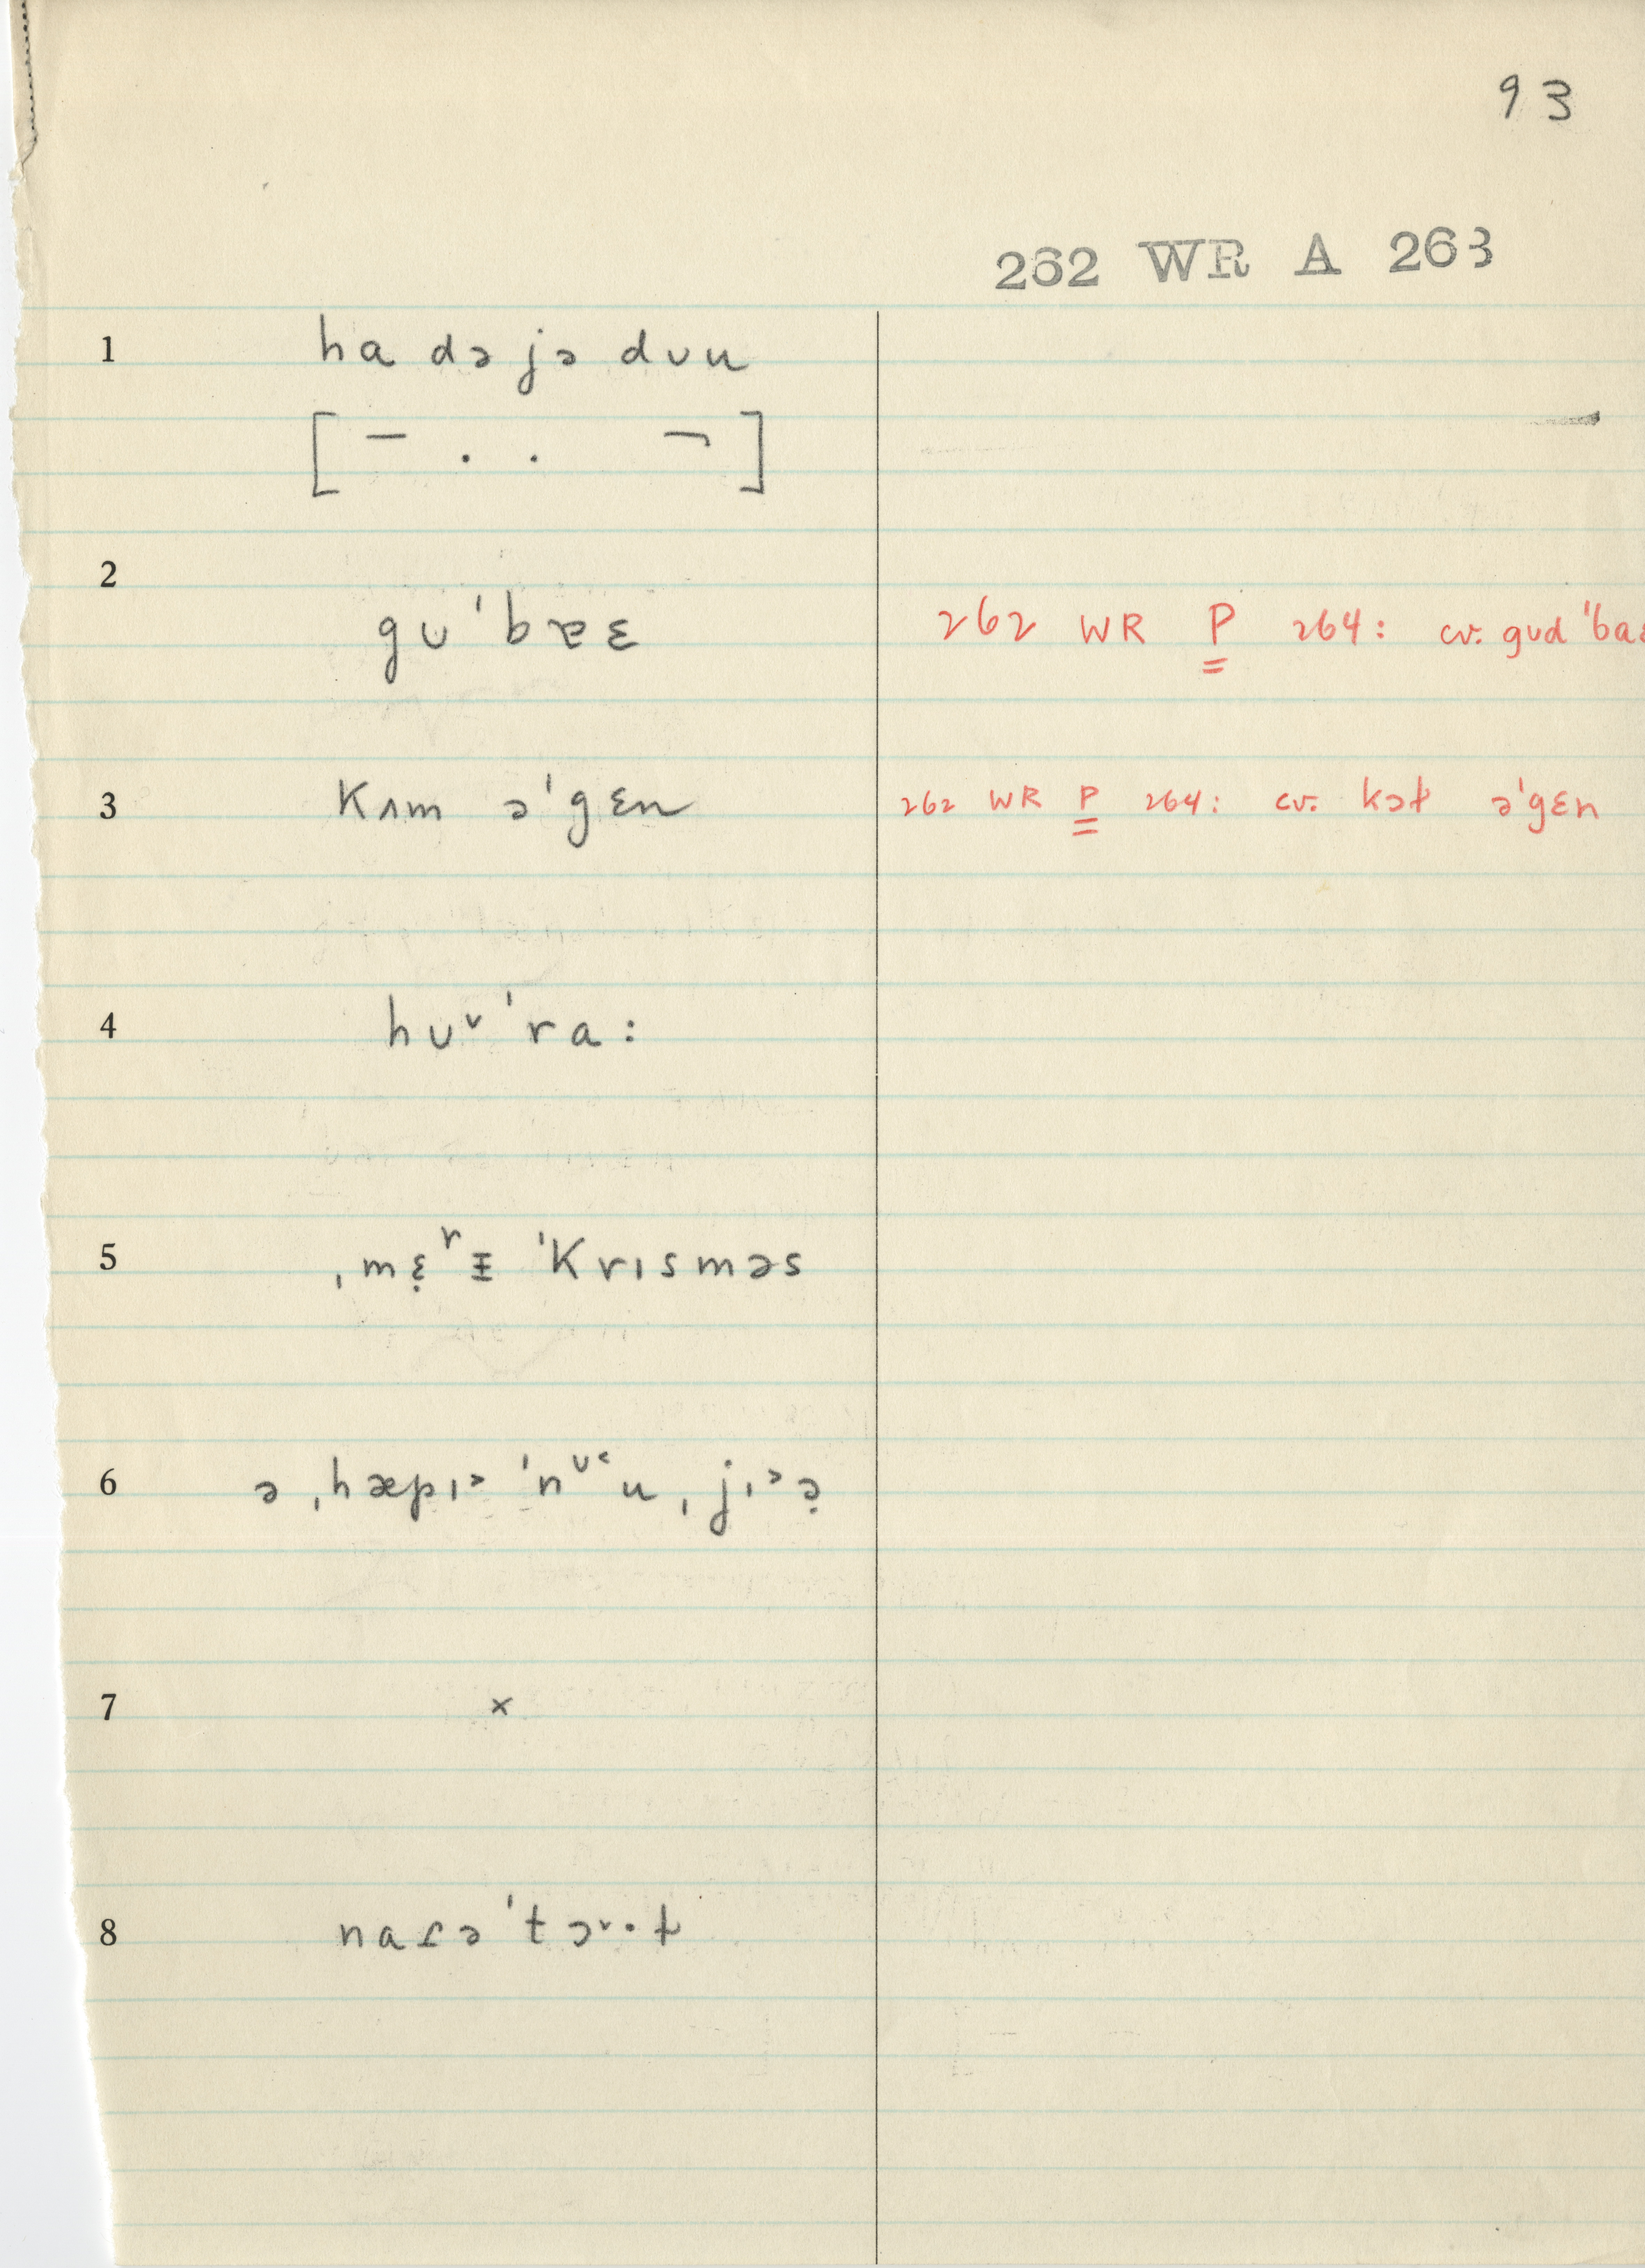 93
262 WR A 263
1 ha də jə dʊu
[ – . . ¬ ]
2
gʊ ˈbɐɛ 262 WR P 264: cv. gʊd ˈba
3 kʌm əˈgɛn 262 WR P 264: cv. kɔɫ əˈgɛn
4 hʊ˅ˈra:
5 ˌmɛ̣ʳɪ̵ ˈkrɪsməs
6 ə ˌhæpɪ˃ ˈnᶷ˂u ˌjɪ˃ə̣
7 ×
8 naɾəˈtɔ˅·ɫ